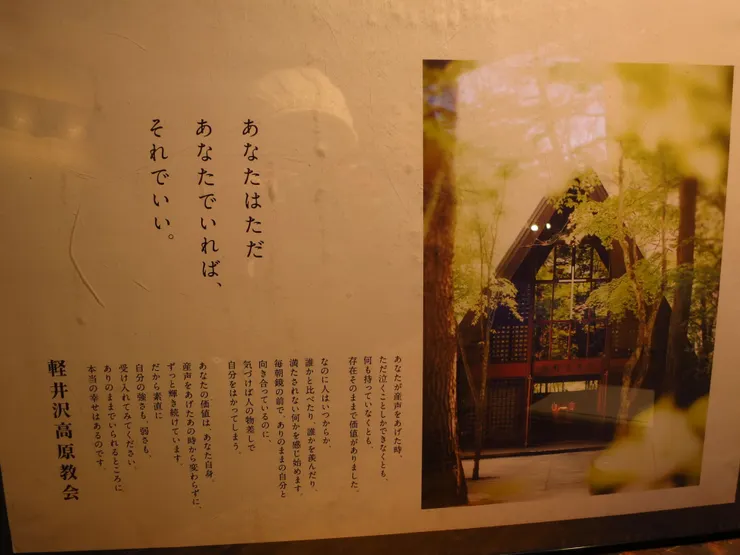 あなたはただ
あなたでいれば、
それでいい。
あなたが産声をあげた時、
ただ泣くことしかできなくとも、
何も持っていなくとも、
存在そのままで価値がありました。
なのに人はいつからか、
誰かと比べたり、誰かを羨んだり、
満たされない何かを感じ始めます。
毎朝鏡の前で、ありのままの自分と
向き合っているのに、
気づけば人の物差しで
自分をはかってしまう。
あなたの価値は、あなた自身。
産声をあげたあの時から変わらずに、
ずっと輝き続けています。
だから素直に
自分の強さも、弱さも、
受け入れてみてください。
ありのままでいられるところに
本当の幸せはあるのです。
軽井沢高原教会